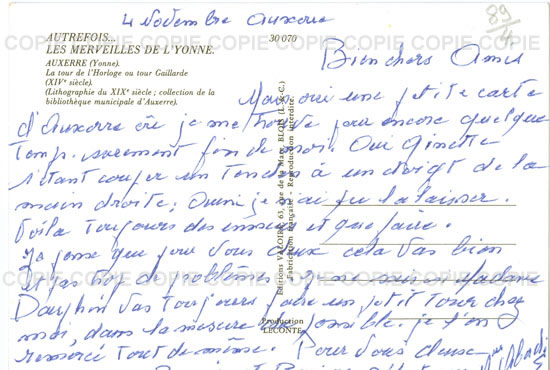 4 Novembre Auxerre
AUTREFOIS...
LES MERVEILLES DE L'YONNE.
30070
AUXERRE (Yonne).
La tour de l'Horloge ou tour Gaillarde
(XIVe siècle).
(Lithographie du XIXe siècle ; collection de la
bibliothèque municipale d'Auxerre).
COPIE COPIE COPIE COPIE COPIE COPIE
Bien chers Amis
une petite carte
d'Auxerre où je me trouve pour encore quelque
temp. surement fin de mois. Que Ginette
s'etant couper un tendon à un doigt de la
main droite; je
Voila toujours des et que faire.
Je pense que pour vous deux cela vas bien
et pas trop de problème. Madame
Dauphin vas toujours faire un petit tour chez
moi, dans la mesure du possible. je t'en
remercie tout de même. Pour vous deux
Editions VALOIRE, 63, rue de la Mare, BLOIS (L.-&-C.)
Fabrication française - Reproduction interdite
Production
LECONTE